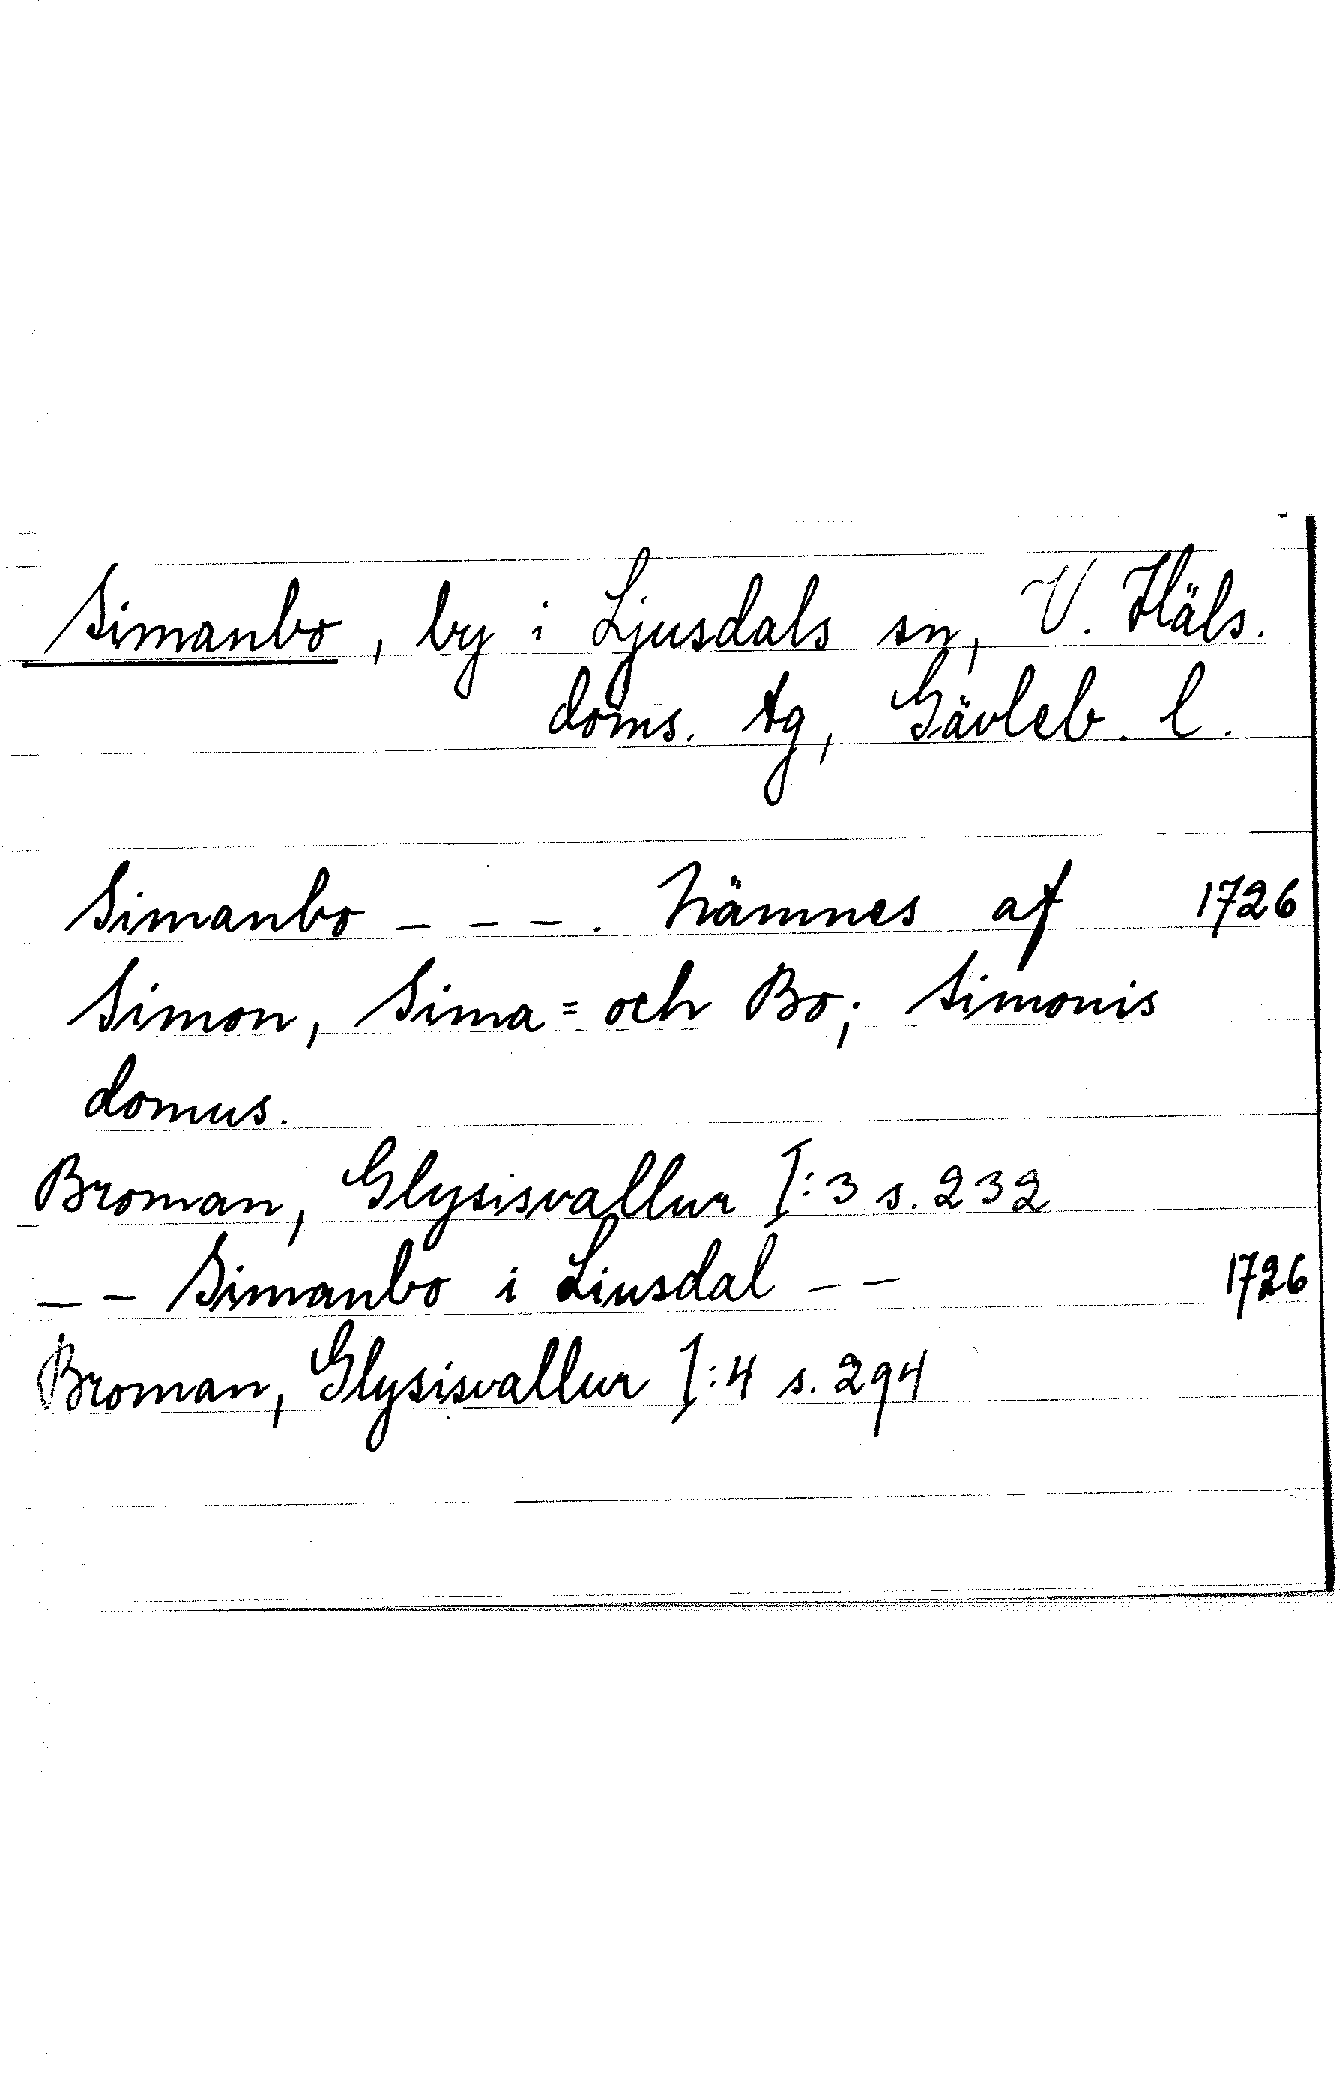 Simanbo, by i Ljusdals sn, V. Häls.
doms. tg, Gävleb. l.
Simanbo _ _ _. Nämnes af 1726
Simon, Sima = och Bo; Simonis
domus.
Broman, Glysisvallur I:3 s. 232
_ _ Simanbo i Liusdal _ _ 1726
Broman, Glysisvallur I:4 s. 294